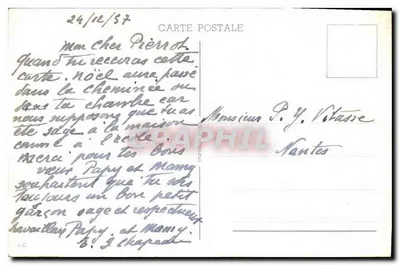 24/12/57
CARTE POSTALE
mon cher Pierrot
quand tu recevras cette
carte. nöel aura passé
dans la cheminée ou
dans ta chambre car
nous supposons que tu as
été sage à la maison
comme à l'école.
merci pour tes bons
vœux Papy et Mamy
souhaitent que tu sois
toujours un bon petit
garçon sage et respectueux
travailleur Papy. et Mamy.
Monsieur P. Y. Vitasse
Nantes
DELCAMPHIL